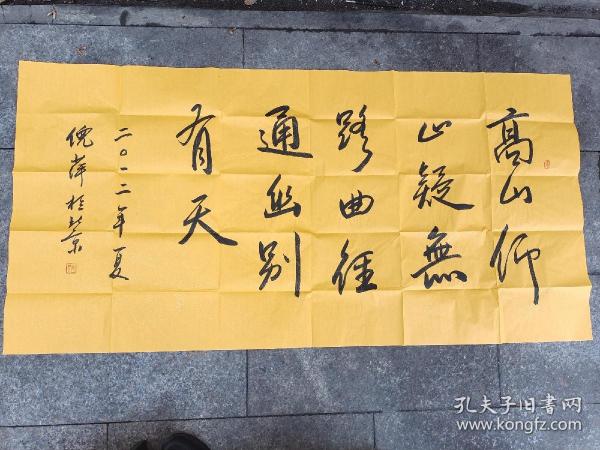 高山仰
止疑無
路曲徑
通幽别
有天
二〇一二年夏
倪萍於北京
孔夫子旧书网
www.kongfz.com